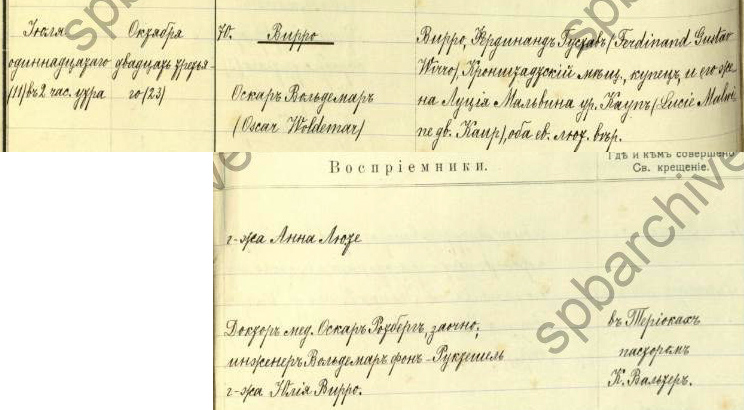 Іюля
одиннадцатаго
(11) въ 2 час. утра
Октября
двадцать третья-
го (23)
70. Вирро
Оскаръ Вольдемаръ
(Oscar Woldemar)
Вирро, Фердинандъ Густавъ (Ferdinand Gustav
Wirro) Кронштадтскій мѣщ., купец, и его же-
на Луція Мальвина ур. Каупъ (Lucie Malwi-
ne geb. Kaup), оба ев. лют. вѣр.
Воспріемники.
Гдѣ и кѣмъ совершено
Св. крещеніе.
г-жа Анна Люте
Докторъ мед. Оскаръ Ротбергъ, заочно;
инженеръ Вольдемаръ фонъ-Руктешель
г-жа Юлія Вирро.
въ Теріокахъ
пасторомъ
К. Вальтеръ.
spbarchive
spbarchive